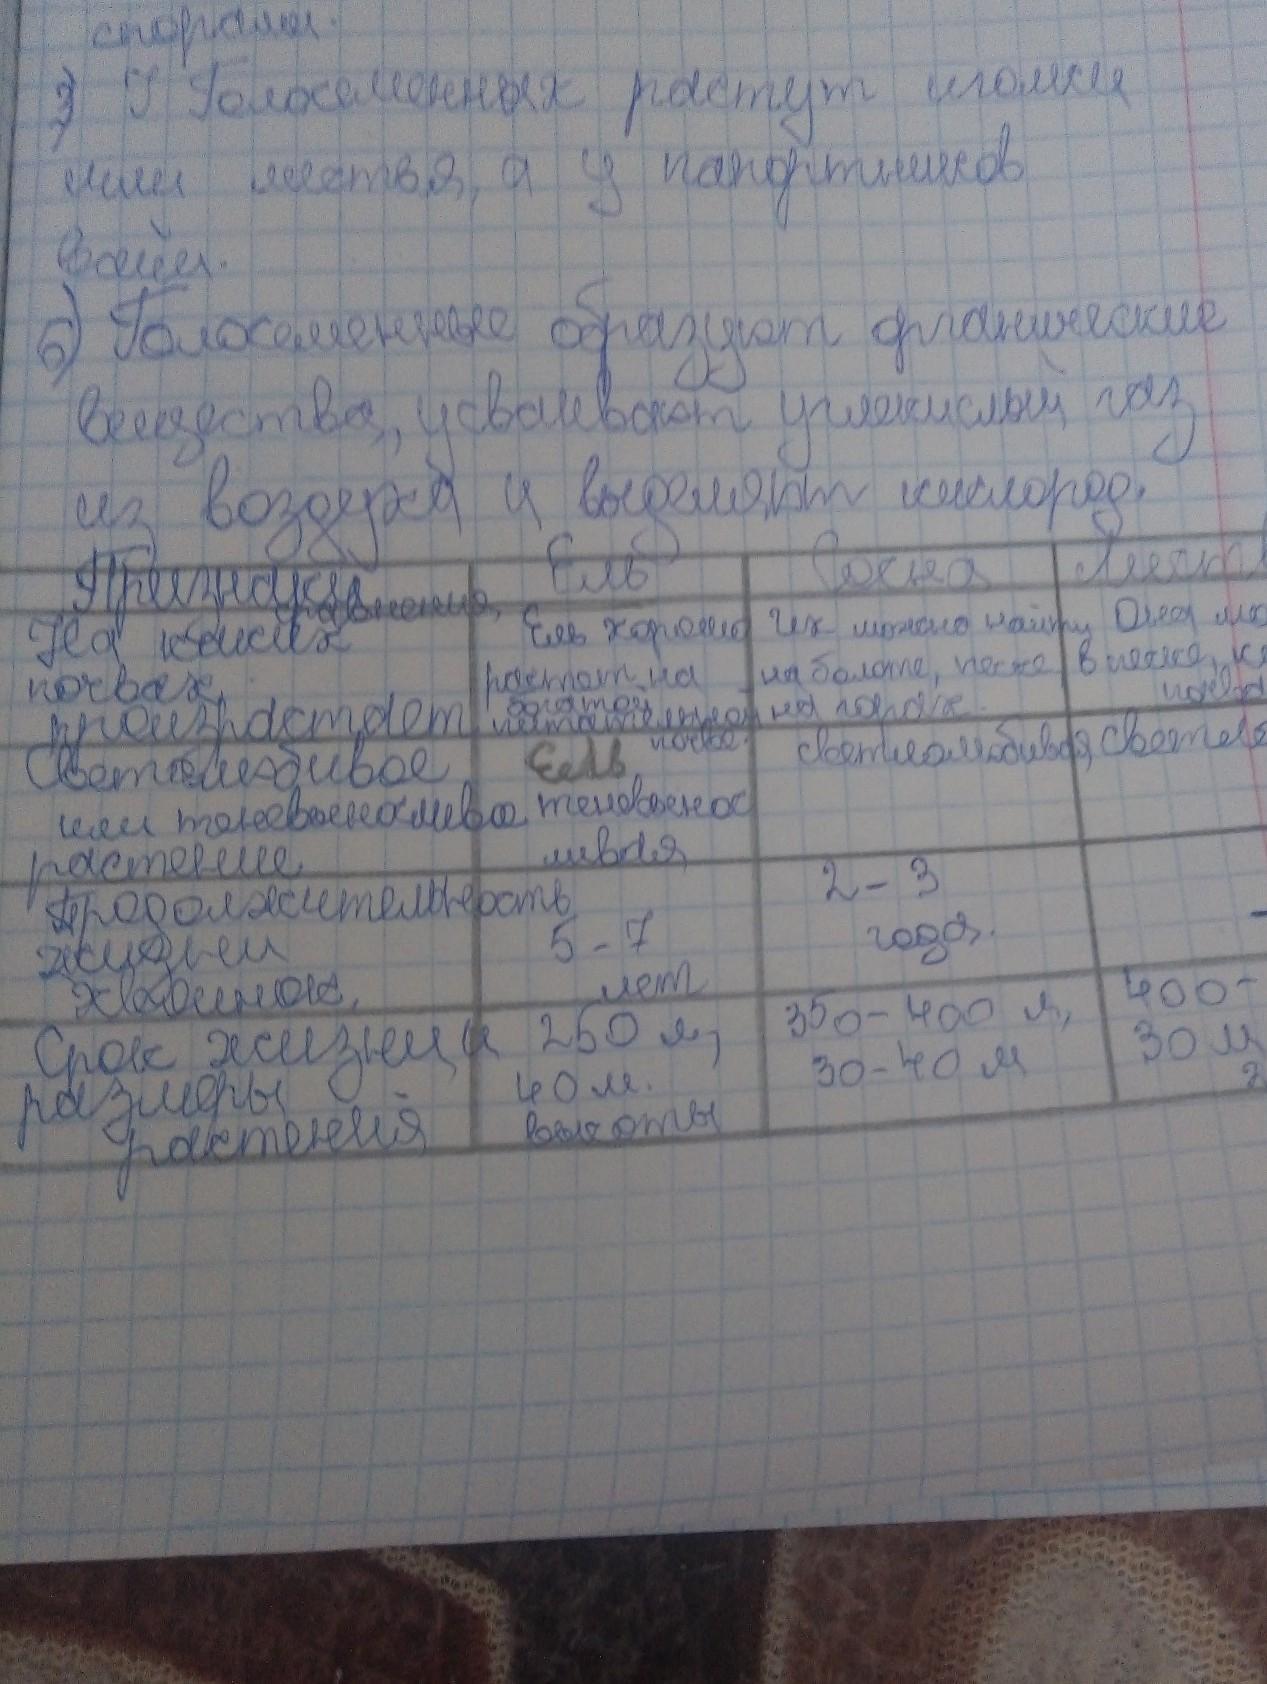 спорами.
3) У Голосеменных растут иголки
или листья, а у папортников
вайи.
6) Голосеменные образуют органические
вещества, усваивают углекислый газ
из воздуха и выделяют кислород.
Признаки сравнения, Ель Сосна Лист
На каких почвах, произрастает
Ель хорошо растет на богатой питательной почве.
Их можно найти на болоте, песке на горах.
Она мо
в песке, к
Светолюбивое или теневыносливое растение
Ель теневынос ливая
светлолюбивая, Светлол
Продолжительность жизни хвоинок,
5-7 лет
2-3 года.
-
Срок жизни и размеры растения
250 л, 40 м. высоты
350-400 л, 30-40 м
400-
30 м